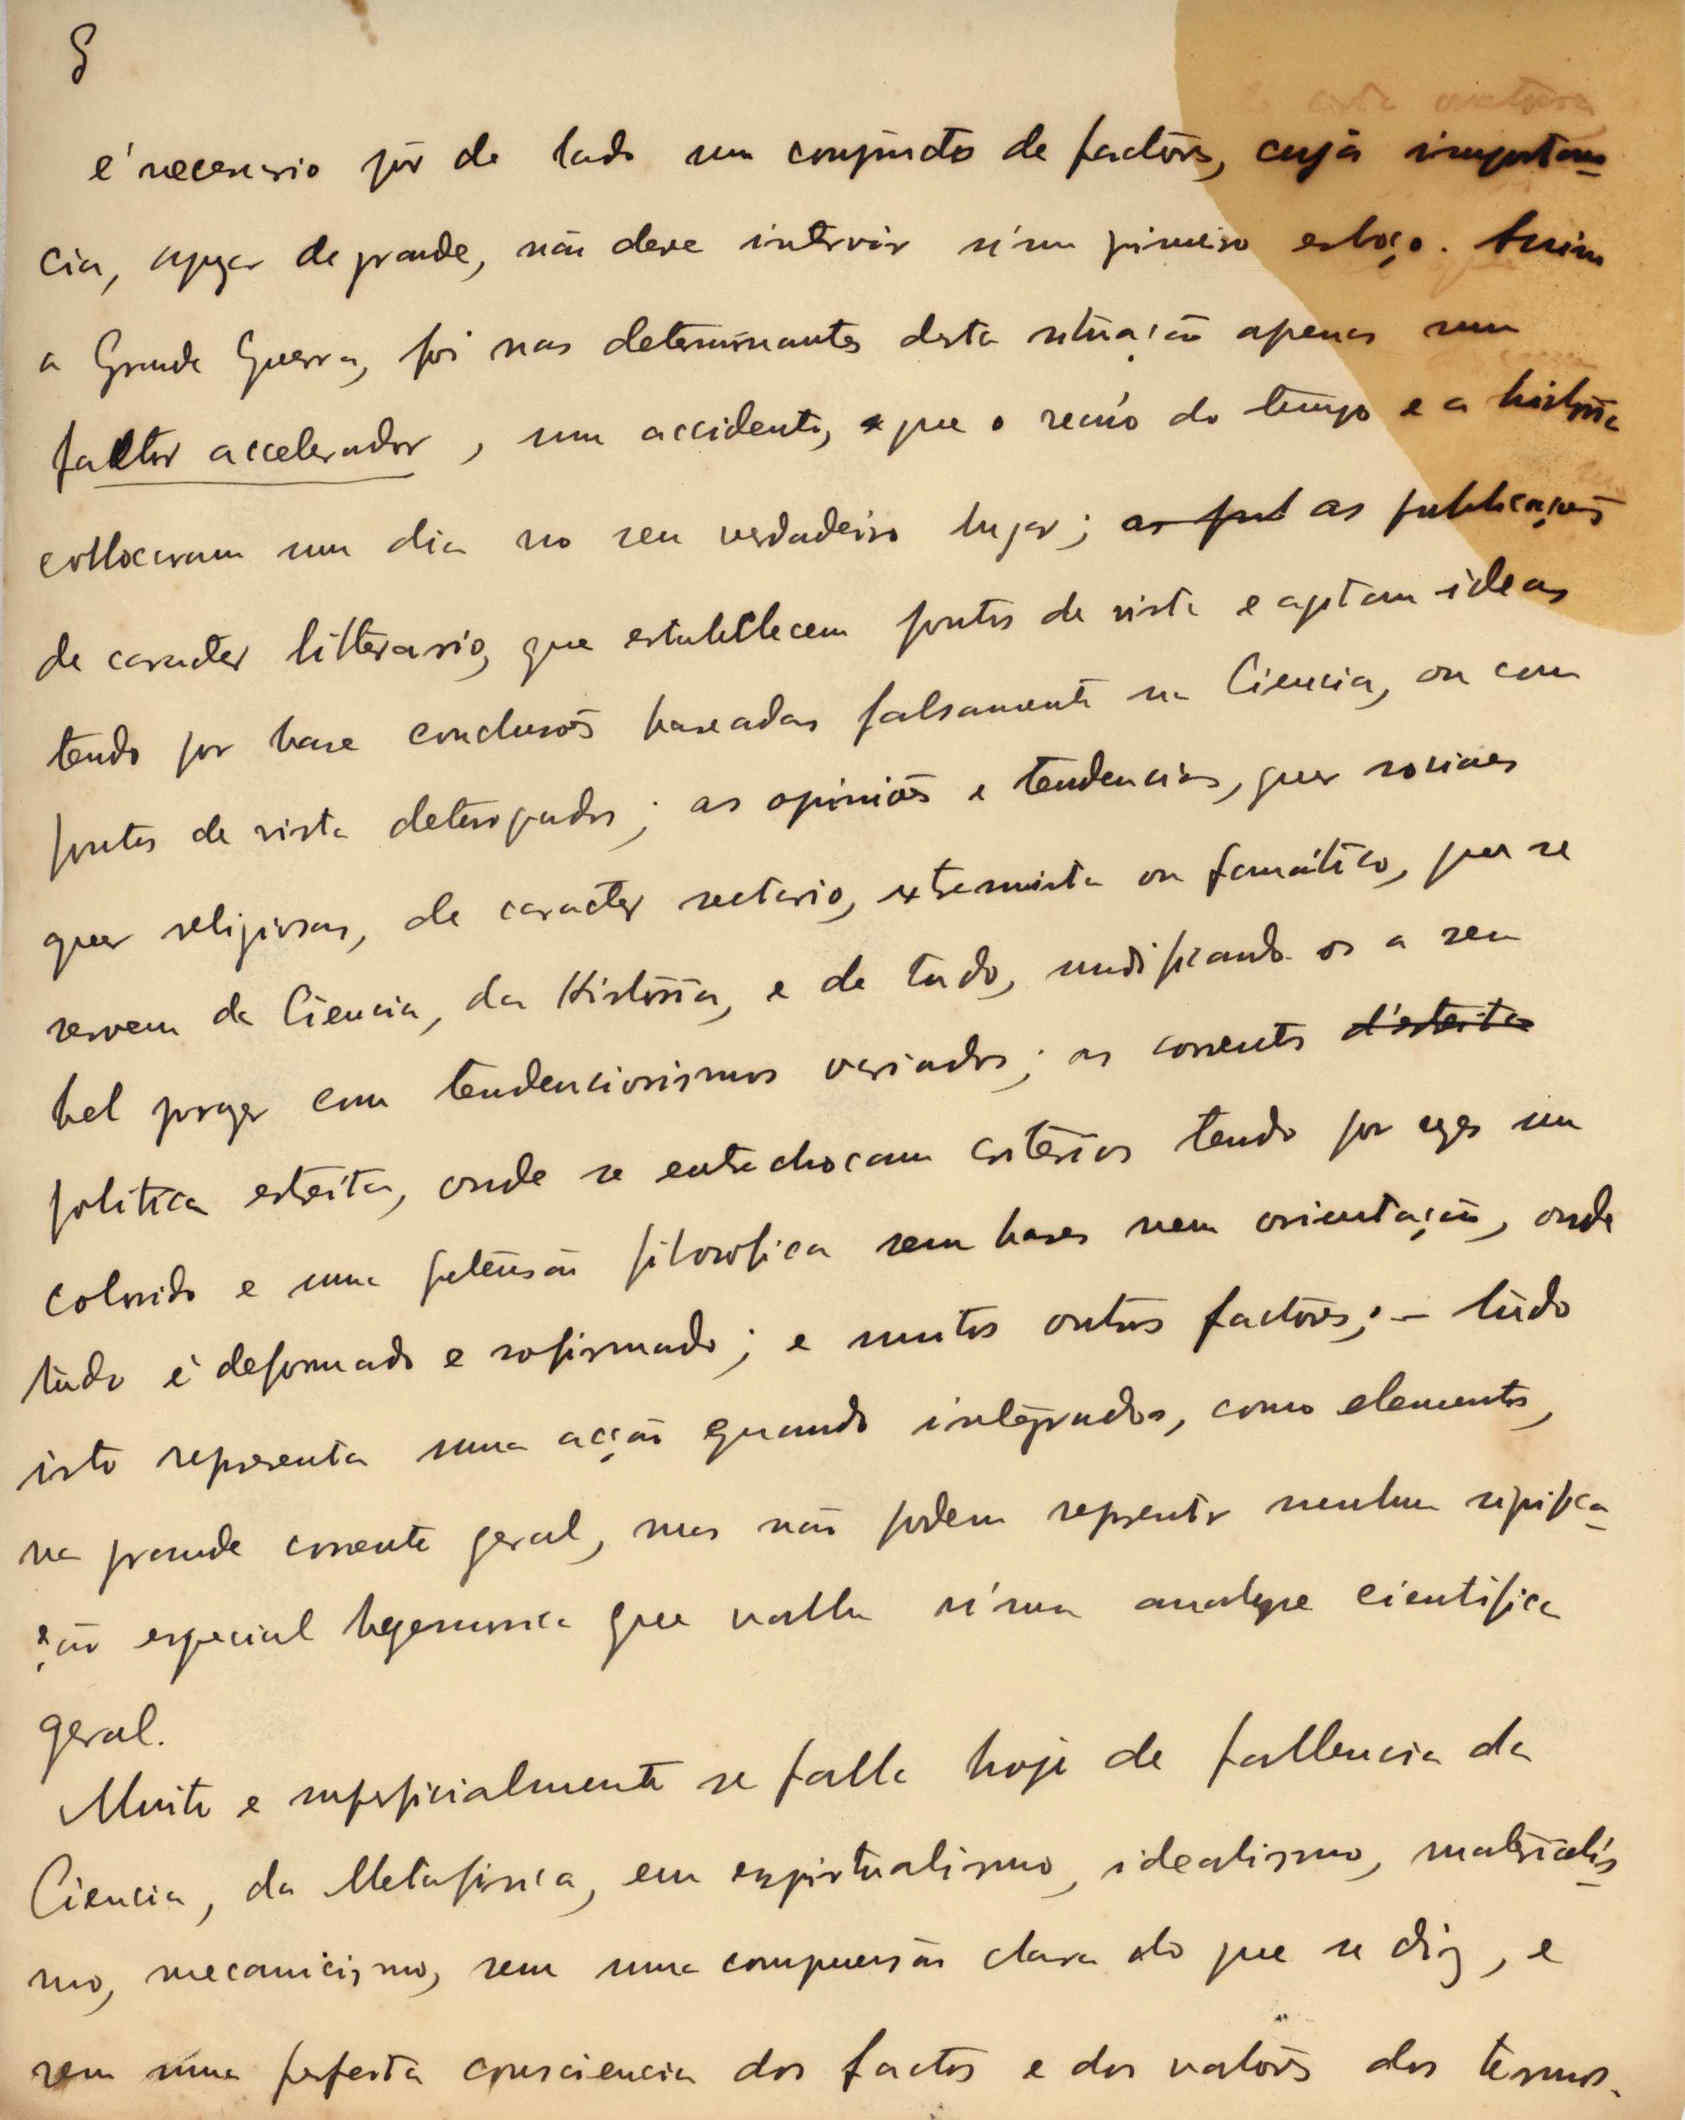 8
é necessario pôr de lado um conjuncto de factores, cuja importan-
cia, apezar de grande, não deve intervir n'um primeiro esboço. Assim
a Grande Guerra, foi nas determinantes desta situação apenas um
factor accelerador, um accidente, que o recúo do tempo e a historia
collocaram um dia no seu verdadeiro lugar; as pub as publicações
de caracter litterario, que estabellecem pontos de vista e agitam ideas
tendo por base conclusões baseadas falsamente na Ciencia, ou com
pontos de vista deturpados; as opiniões e tendencias, quer sociaes
quer religiosas, de caracter sectario, extremista ou fanático, que se
servem da Ciencia, da Historia, e de tudo, modificando-os a seu
bel prazer com tendenciosismos variados; as correntes d'estreita
politica estreita, onde se entrechocam criterios tendo por vezes um
colorido e uma pretensão filosofica sem bases nem orientação, onde
tudo é deformado e sofismado; e muitos outros factores; - tudo
isto representa uma acção quando integrados, como elementos,
na grande corrente geral, mas não podem representar nenhuma significa-
ção especial hegemonica que valha n'uma analyse cientifica
geral.
Muito e superficialmente se falla hoje de fallencia da
Ciencia, da Metafisica, em espiritualismo, idealismo, materialis-
mo, mecanicismo, sem uma compreensão clara do que se diz, e
sem uma perfeita consciencia dos factos e dos valores dos termos.